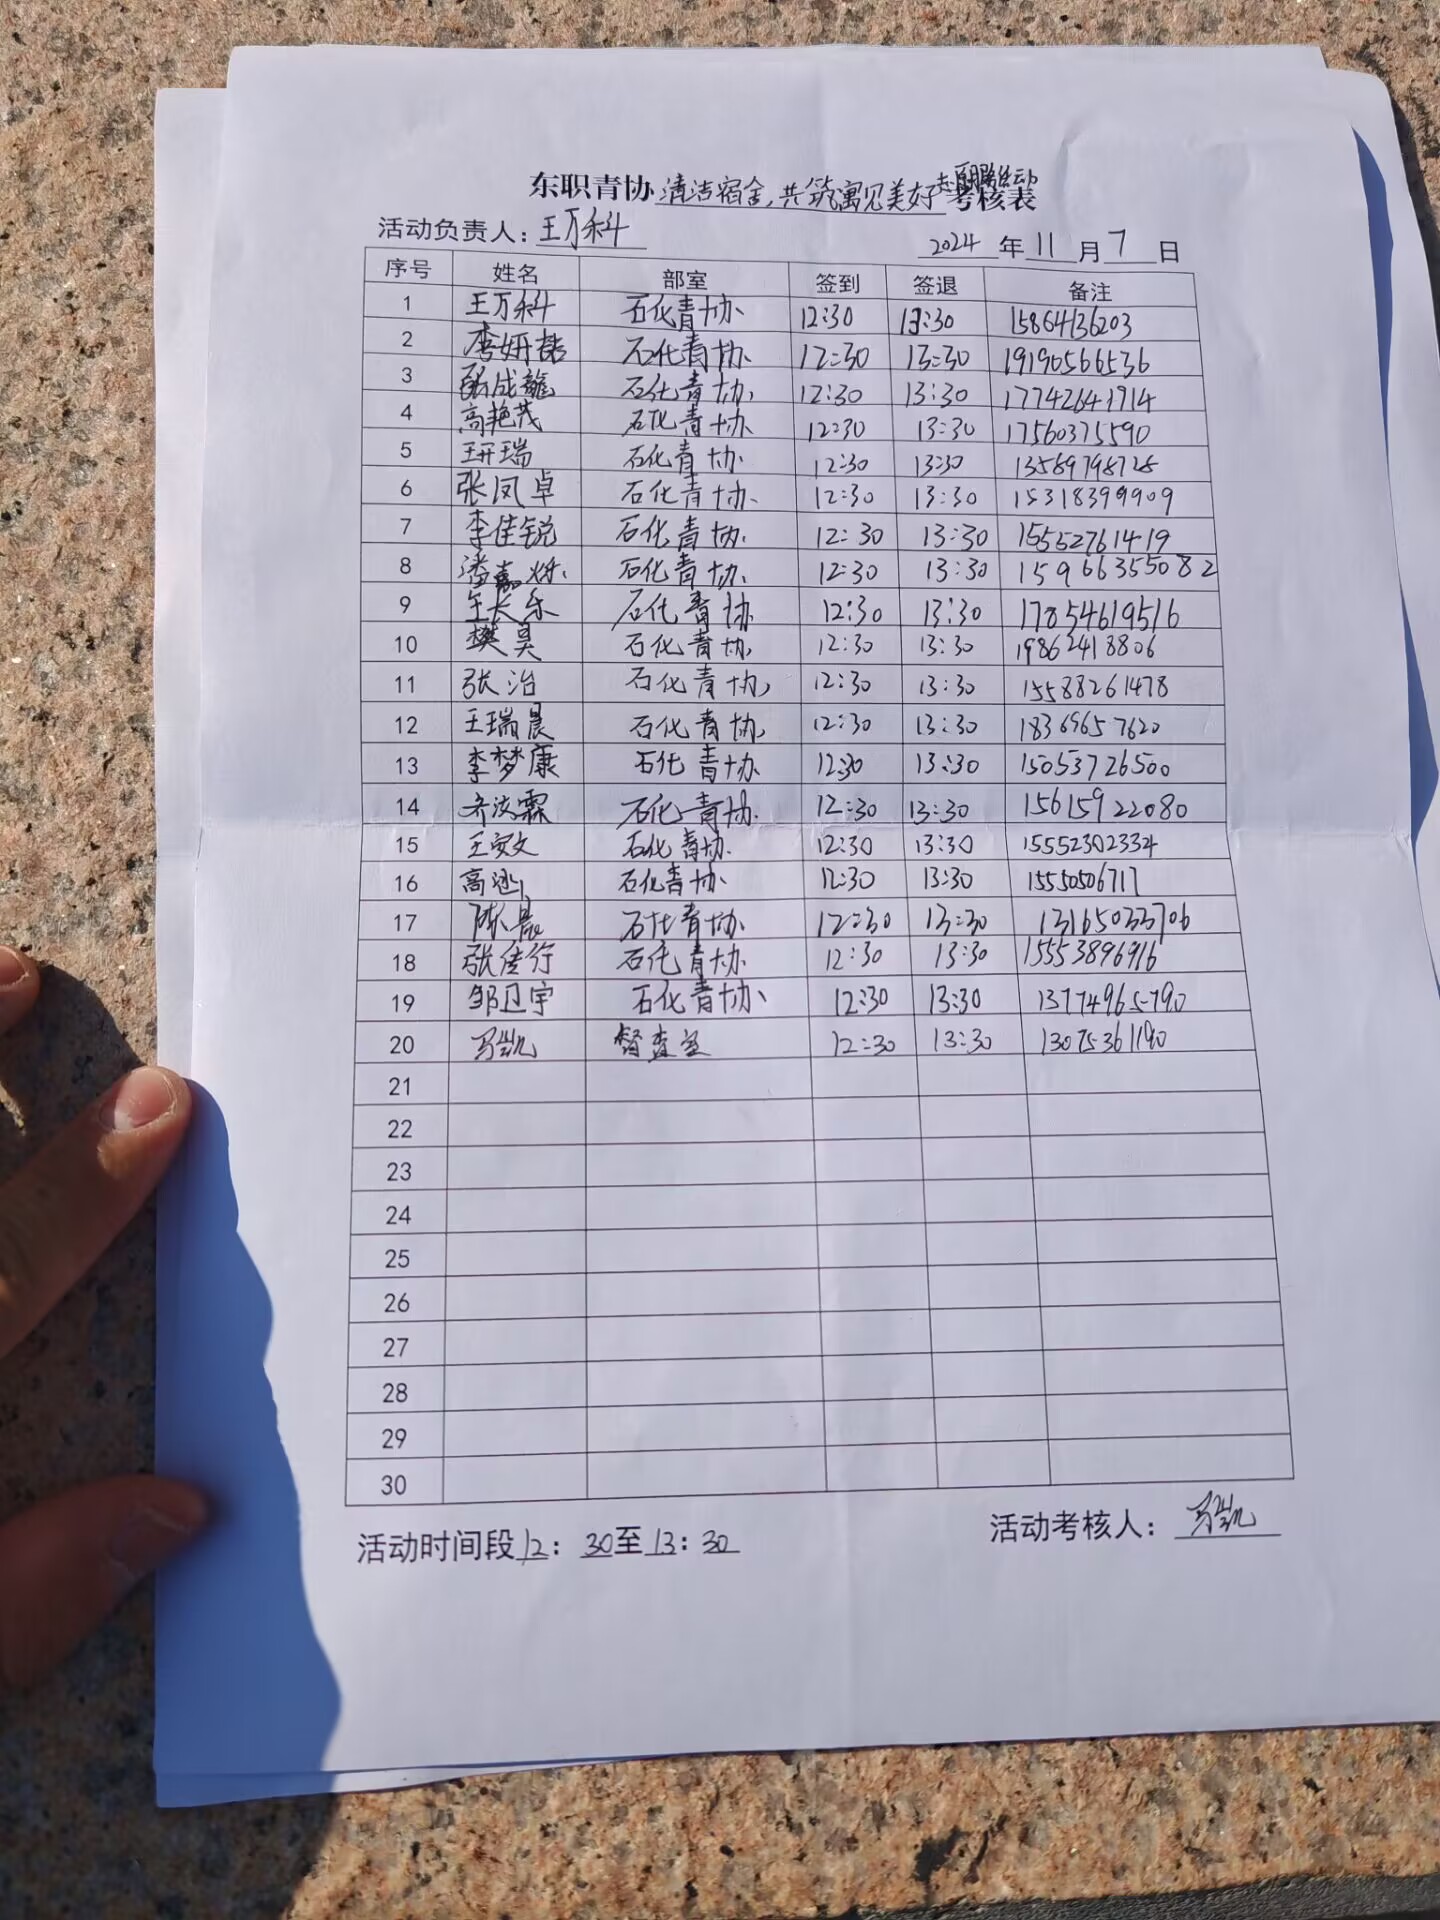 东职青协 清洁宿舍,共筑寓见美好志愿服务活动 考核表
活动负责人: 王万科 2024 年 11 月 7 日
序号 姓名 部室 签到 签退 备注
1 王万科 石化青协 12:30 13:30 15864136203
2 李妍喆 石化青协 12:30 13:30 19190566536
3 石化青协 12:30 13:30 17742641714
4 高艳茂 石化青协 12:30 13:30 17560375590
5 王研瑞 石化青协 12:30 13:30 13589798728
6 张凤卓 石化青协 12:30 13:30 15318399909
7 李佳锐 石化青协 12:30 13:30 15552761419
8 潘嘉烁 石化青协 12:30 13:30 15966355082
9 王长乐 石化青协 12:30 13:30 17854619516
10 樊昊 石化青协 12:30 13:30 19862418806
11 张治 石化青协 12:30 13:30 15588261478
12 王瑞晨 石化青协 12:30 13:30 18369657620
13 李梦康 石化青协 12:30 13:30 15053726500
14 石化青协 12:30 13:30 15615922080
15 王安文 石化青协 12:30 13:30 15552302334
16 石化青协 12:30 13:30 15550506717
17 陈晨 石化青协 12:30 13:30 13165033706
18 张传行 石化青协 12:30 13:30 15553896916
19 邹卫宇 石化青协 12:30 13:30 13774965790
20 马凯 督查室 12:30 13:30 13075361190
21
22
23
24
25
26
27
28
29
30
活动时间段 12: 30至 13: 30 活动考核人: 马凯